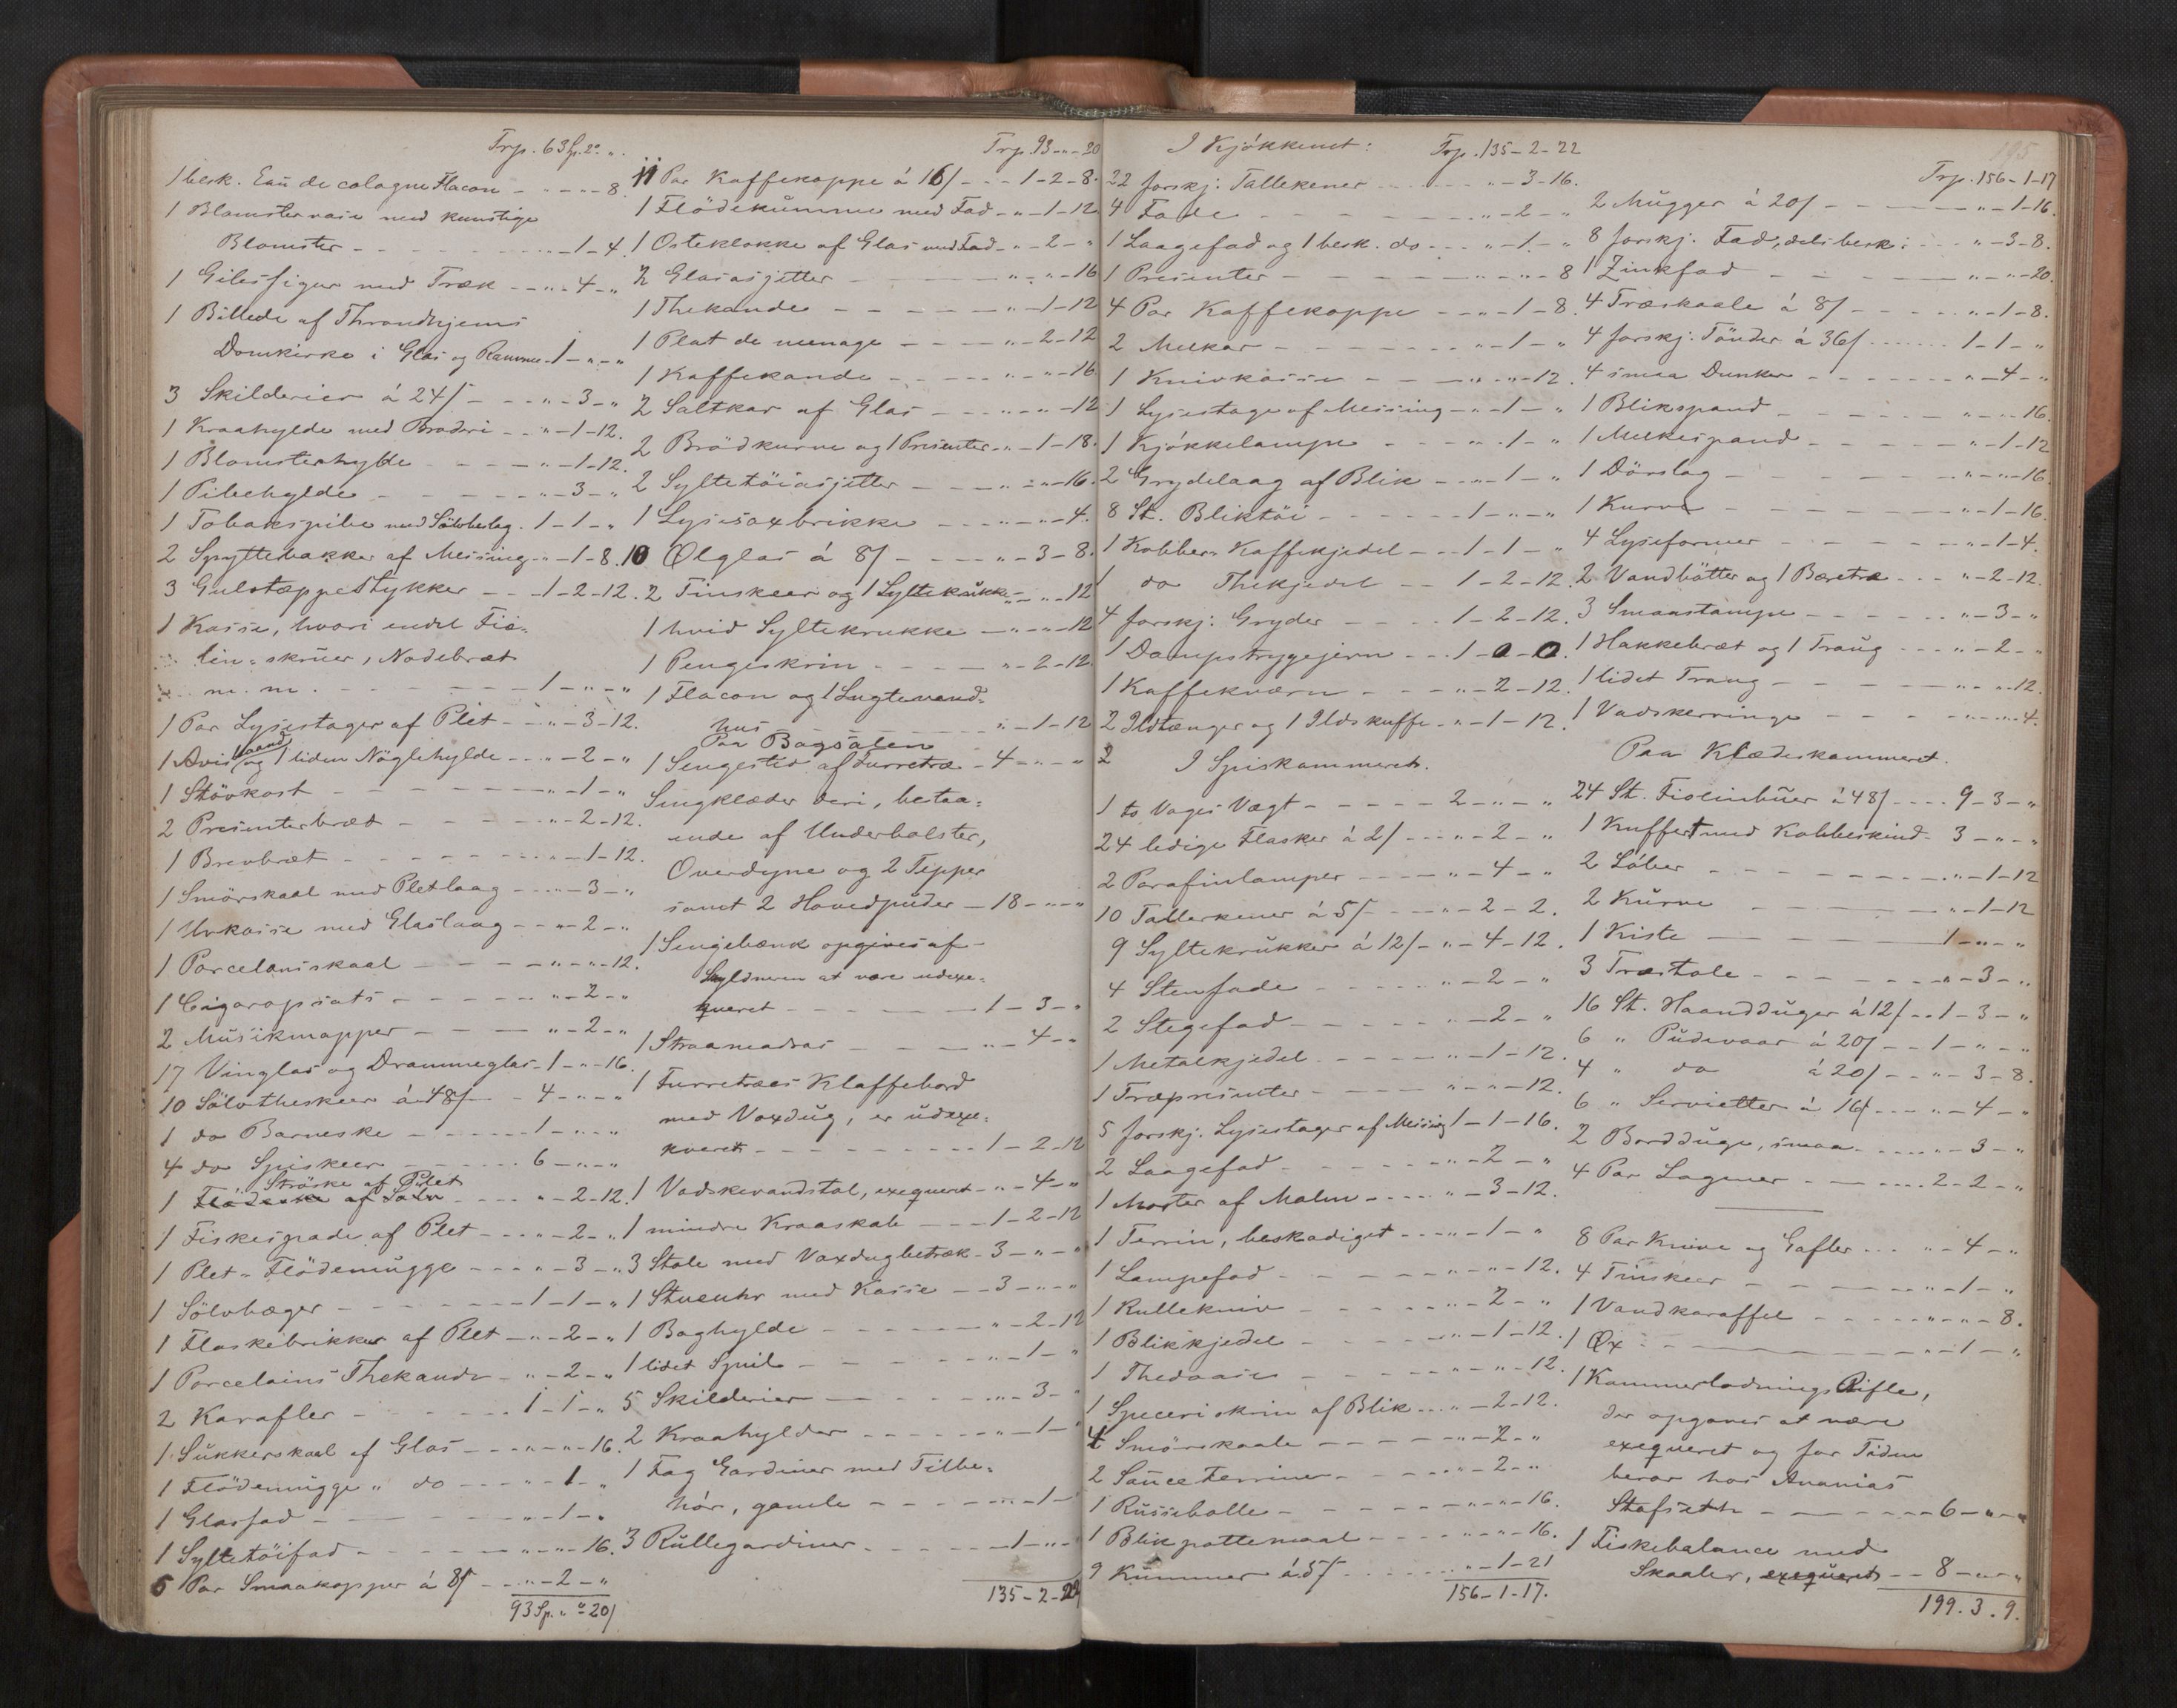 Trp. 63 Sp. 2° „.
1 besk. Eau de cologne Flacon - „ - „ - 8.
1 Blomstervase med kunstige
Blomster - „ - 1 - 4.
1 Gibsfigur med Træk - „ - 4 - „
1 Billede af Throndhjems
Domkirke i Glas og Ramme - 1 - „ - „
3 Skilderier á 24/ - „ - 3 - „
1 Kraahylde med Broderi - „ - 1 - 12.
1 Blomsterhylde - „ - 1 - 12.
1 Pibehylde - „ - 3 - „
1 Tobakspibe med Sölvbeslag. 1 - 1 - „
2 Spyttebakker af Messing - „ - 1 - 8.
3 Gulvtæppestykker - 1 - 2 - 12.
1 Kasse, hvori endel Fio-
lin-skruer, Nodebræt
m. m. - 1 - „ - „
1 Par Lysestager af Plet - „ - 3 - 12.
1 Avishaand og 1 liden Nöglehylde - „ - 2 - „
1 Stövkost - „ - 1 - „
2 Presenterbræt - „ - 2 - 12.
1 Brevbræt - „ - 1 - 12.
1 Smörskaal med Pletlaag - „ - 3 - „
1 Urkasse med Glaslaag - „ - 2 - „
1 Porcelainskaal - „ - „ - 12.
1 Cigaropsats - „ - 2 - „
2 Musikmapper - „ - 2 - „
17 Vinglas og Drammeglas - 1 - „ - 16.
10 Sölvtheskeer á 48/ - 4 - „ - „
1 do Barneske - 1 - „ - „
4 do Spiskeer - 6 - „ - „
Ströske af Plet
1 Flödeske af Sölv - „ - 2 - 12.
1 Fiskespade af Plet - „ - 2 - „
1 Plet-Flödemugge - „ - 3 - „
1 Sölvbæger - 1 - 1 - „
1 Flaskebrikker af Plet - „ - 2 - „
1 Porcelains Thekande - „ - 2 - „
2 Karafler - 1 - 1 - „
1 Sukkerskaal af Glas - „ - „ - 16.
1 Flödemugge „ do - „ - 1 - „
1 Glasfad - „ - 1 - „
1 Syltetöifad - „ - „ - 16.
6 Par Smaakopper á 8/ - „ - 2 - „
93 Sp. „ ° 20/
Trp. 93 - „ - 20
11 Par Kaffekoppe á 16/ - 1 - 2 - 8.
1 Flödekumme med Fad - „ - 1 - 12
1 Osteklokke af Glas med Fad - „ - 2 - „
2 Glasasjetter - „ - „ - 16
1 Thekande - „ - 1 - 12
1 Plat de menage - „ - 2 - 12
1 Kaffekande - „ - „ - 16
2 Saltkar af Glas - „ - „ - 12
2 Brödkurve og 1 Presenter - „ - 1 - 18.
2 Syltetöiasjetter - „ - „ - 16.
1 Lysesaxbrikke - „ - „ - 4.
10 Ølglas á 8/ - „ - 3 - 8.
2 Tinskeer og 1 Syltekrukke - „ - „ - 12
1 hvid Syltekrukke - „ - „ - 12
1 Pengeskrin - „ - 2 - 12
1 Flacon og 1 Lugtevand-
hus - „ - 1 - 12
Paa Bagsalen
1 Sengested af Furretræ - 4 - „ - „
Sengklæder deri, bestaa-
ende af Underbolster,
Overdyne og 2 Tepper
samt 2 Hovedpuder - 18 - „ - „
1 Sengebænk opgives af
Skyldneren at være udexe-
queret - 1 - 3 - „
1 Straamadras - „ - 4 - „
1 Furretræes Klaffebord
med Voxdug, er udexe-
kveret - 1 - 2 - 12
1 Vadskevandstol, exequert - „ - 4 - „
1 mindre Kraaskab - 1 - 2 - 12
3 Stole med Voxdugbetræk - 3 - „ - „
1 Stueuhr med Kasse - 3 - „ - „
1 Boghylde - „ - 2 - 12
1 lidet Speil - „ - 1 - „
5 Skilderier - „ - 3 - „
2 Kraahylder - „ - 1 - „
1 Fag Gardiner med Tilbe-
hör, gamle - „ - 1 - „
3 Rullegardiner - 1 - „ - „
135 - 2 - 22
I Kjökkenet: Trp. 135 - 2 - 22
22 forskj. Tallekener - „ - 3 - 16.
4 Fade - „ - 2 - „
1 Laagefad og 1 besk. do - „ - 1 - „
1 Presenter - „ - „ - 8
4 Par Kaffekoppe - „ - 1 - 8.
2 Melkar - „ - 1 - „
1 Knivkasse - „ - „ - 12.
1 Lysestage af Messing - „ - 1 - „
1 Kjökkelampe - „ - 1 - „
2 Grydelaag af Blik - „ - 1 - „
8 St. Bliktöi - 1 - „ - „
1 Kobber-Kaffekjedel - 1 - 1 - „
1 do Thekjedel - 1 - 2 - 12.
4 forskj. Gryder - 1 - 2 - 12.
1 Dampstrygejern - 1 - 0 - 0.
1 Kaffekværn - „ - 2 - 12.
2 Ildtænger og 1 Ildskuffe - „ - 1 - 12.
I Spiskammeret.
1 to Voges Vægt - 2 - „ - „
24 ledige Flasker á 2/ - „ - 2 - „
2 Parafinlamper - „ - 4 - „
10 Tallerkener á 5/ - „ - 2 - 2.
9 Syltekrukker á 12/ - „ - 4 - 12.
4 Stenfade - „ - 2 - „
2 Stegefad - „ - 2 - „
1 Metalkjedel - „ - 1 - 12.
1 Træpresenter - „ - „ - 12.
5 forskj. Lysestager af Messing 1 - 1 - 16.
2 Laagefad - „ - 2 - „
1 Morter af Malm - „ - 3 - 12.
1 Terrin, beskadiget - „ - 1 - „
1 Lampefad - „ - „ - 12.
1 Rullekniv - „ - 2 - „
1 Blikkjedel - „ - 1 - 12.
1 Thedaase - „ - „ - 12.
1 Speceriskrin af Blik - „ - 2 - 12.
4 Smörskaale - „ - 2 - „
2 Sauceterriner - „ - 2 - „
1 Russebolle - „ - „ - 16.
1 Blikpottemaal - „ - „ - 16.
9 Kummer á 5/ - „ - 1 - 21
156 - 1 - 17.
195
Trp. 156 - 1 - 17
2 Mugger á 20/ - „ - 1 - 16.
8 forskj. Fad, dels besk: - „ - 3 - 8.
1 Zinkfad - „ - „ - 20.
4 Træskaale á 8/ - „ - 1 - 8.
4 forskj. Tönder á 36/ - 1 - 1 - „
4 smaa Dunker - „ - 4 - „
1 Blikspand - „ - „ - 16.
1 Melkespand - „ - 1 - 12
1 Dörslag - „ - „ - 16.
1 Kurve - „ - 1 - 16.
4 Lyseformer - „ - 1 - 4.
2 Vandbötter og 1 Bæretræ - „ - 2 - 12.
3 Smaastampe - „ - 3 - „
1 Hakkebræt og 1 Traug - „ - 2 - „
1 lidet Traug - „ - „ - 12.
1 Vadskerringe - „ - „ - 4.
Paa Klædeskammeret.
24 St. Fiolinbuer á 48/ - 9 - 3 - „
1 Kuffert med Kobbeskind - 3 - „ - „
2 Löber - „ - 1 - 12
2 Kurve - „ - 1 - 12
1 Kiste - 1 - „ - „
3 Træstole - „ - 3 - „
16 St. Haandduger á 12/ - 1 - 3 - „
6 „ Pudevaar á 20/ - 1 - „ - „
4 „ do á 20/ - „ - 3 - 8.
6 „ Servietter á 16/ - „ - 4 - „
2 Bordduge, smaa - „ - 3 - „
4 Par Lagener - 2 - 2 - „
8 Par Knive og Gafler - „ - 4 - „
4 Tinskeer - „ - 1 - „
1 Vandkaraffel - „ - „ - 8.
1 Øx - „ - 1 - „
1 Kammerladnings Rifle,
der opgaves at være
exequeret og for Tiden
beror hos Ananias
Stafseth - 6 - „ - „
1 Fiskebalance med
Skaaler, exequeret - 8 - „ - „
199. 3. 9.